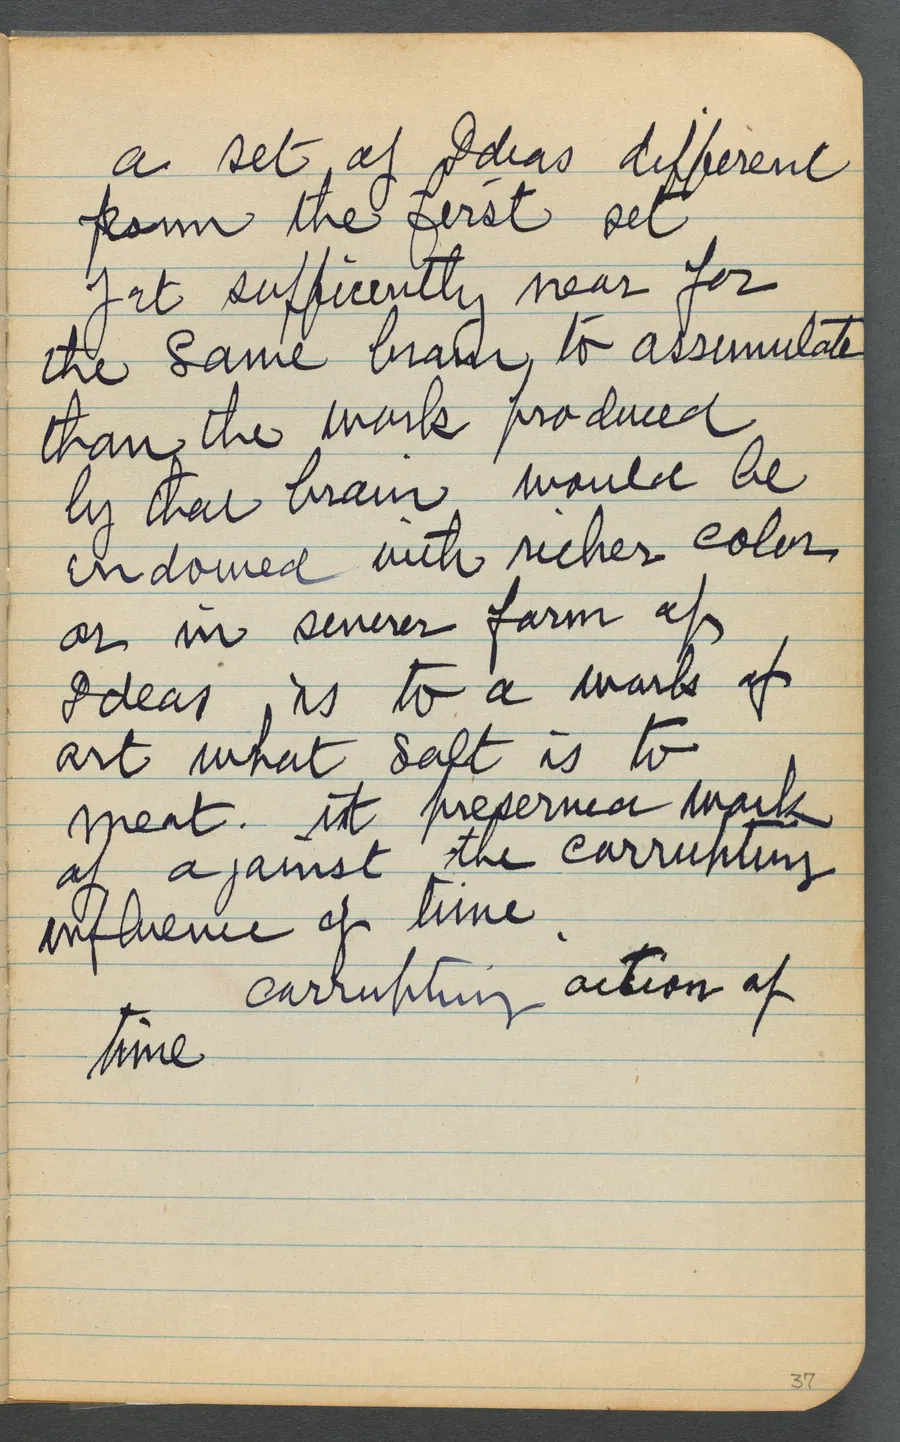 a set of Ideas different
from the first set
yet sufficently near for
the Same brain, to assumulate
than the work produced
by that brain would be
endowed with richer color
or in severer form of
Ideas is to a work of
art what Salt is to
meat. it preserved work
of against the corrupting
influence of time.
corrupting action of
time
37